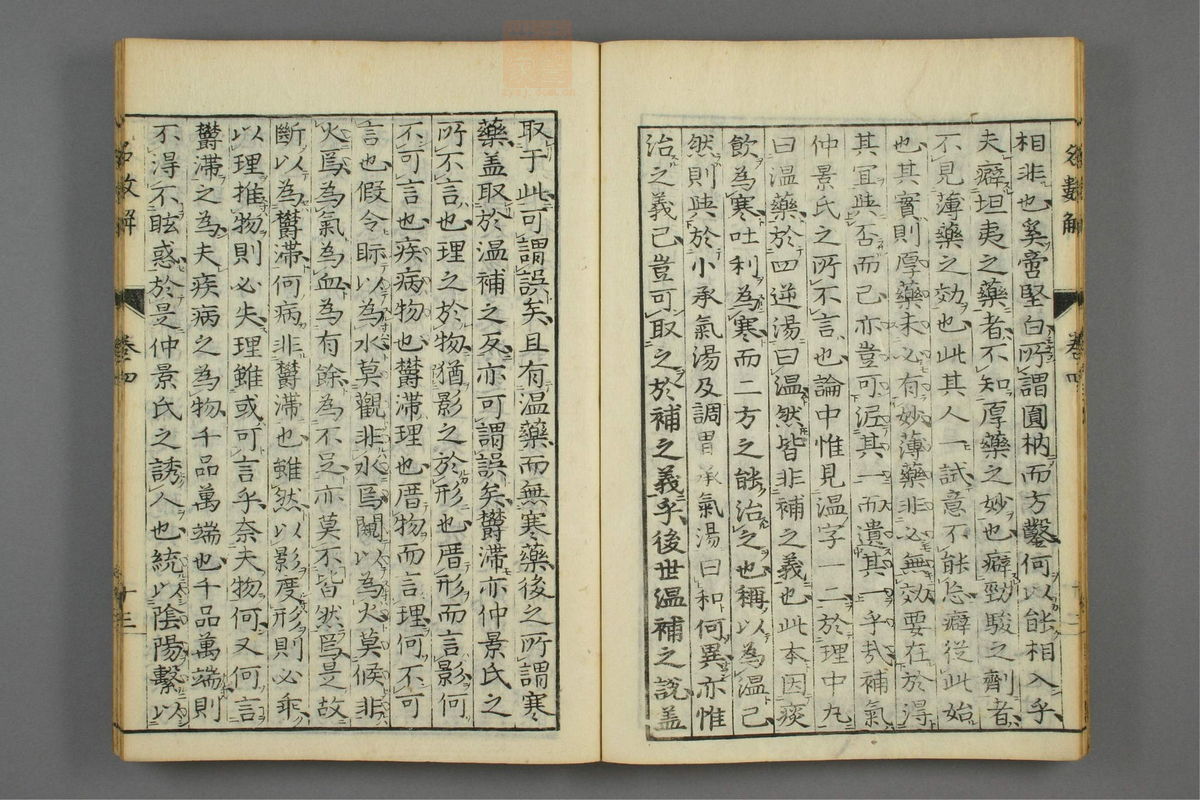 相非也奚啻堅白所謂圓枘而方鑿何以能相入乎
夫癖坦夷之藥者不知厚藥之妙也癖勁駿之劑者
不見薄藥之効也此其人一試意不能忘癖從此始
也其實則厚藥未必有妙薄藥非必無効要在於得
其宜與否而已亦豈可泥其一而遺其一乎哉補氣
仲景氏之所不言也論中惟見温字一二於理中丸
曰温藥於四逆湯曰温然皆非補之義也此本因痰
飲為寒吐利為寒而二方之能治之也稱以為温已
然則與於小承氣湯及調胃承氣湯曰和何異亦惟
治之義已豈可取之於補之義乎後世温補之說盖
名數解
卷四
十三
取于此可謂誤矣且有温藥而無寒藥後之所謂寒
藥盖取於温補之反亦可謂誤矣欝滞亦仲景氏之
所不言也理之於物猶影之於形也厝形而言影何
不可言也疾病物也欝滞理也厝物而言理何不可
言也假令眎以為水莫觀非水焉闞以為火莫候非
火焉為氣為血為有餘為不足亦莫不皆然焉是故
斷以為欝滞何病非欝滞也雖然以影度形則必乖
以理推物則必失理雖或可言乎奈夫物何又何言
欝滞之為夫疾病之為物千品萬端也千品萬端則
不得不眩惑於是仲景氏之誘人也統以陰陽繫以